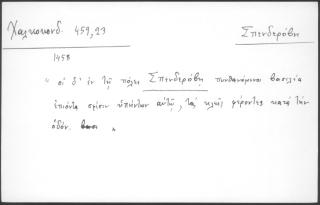 Χαλκοκονδ. 459,23 Σπενδερόβη
1458
" οἱ δ' ἐν τῇ πόλει Σπενδερόβη πυνθανόμενοι βασιλέα
ἐπιόντα σφίσιν ὑπήντων αὐτῷ, τὰς κλεῖς φέροντες κατὰ τὴν
ὁδόν. "